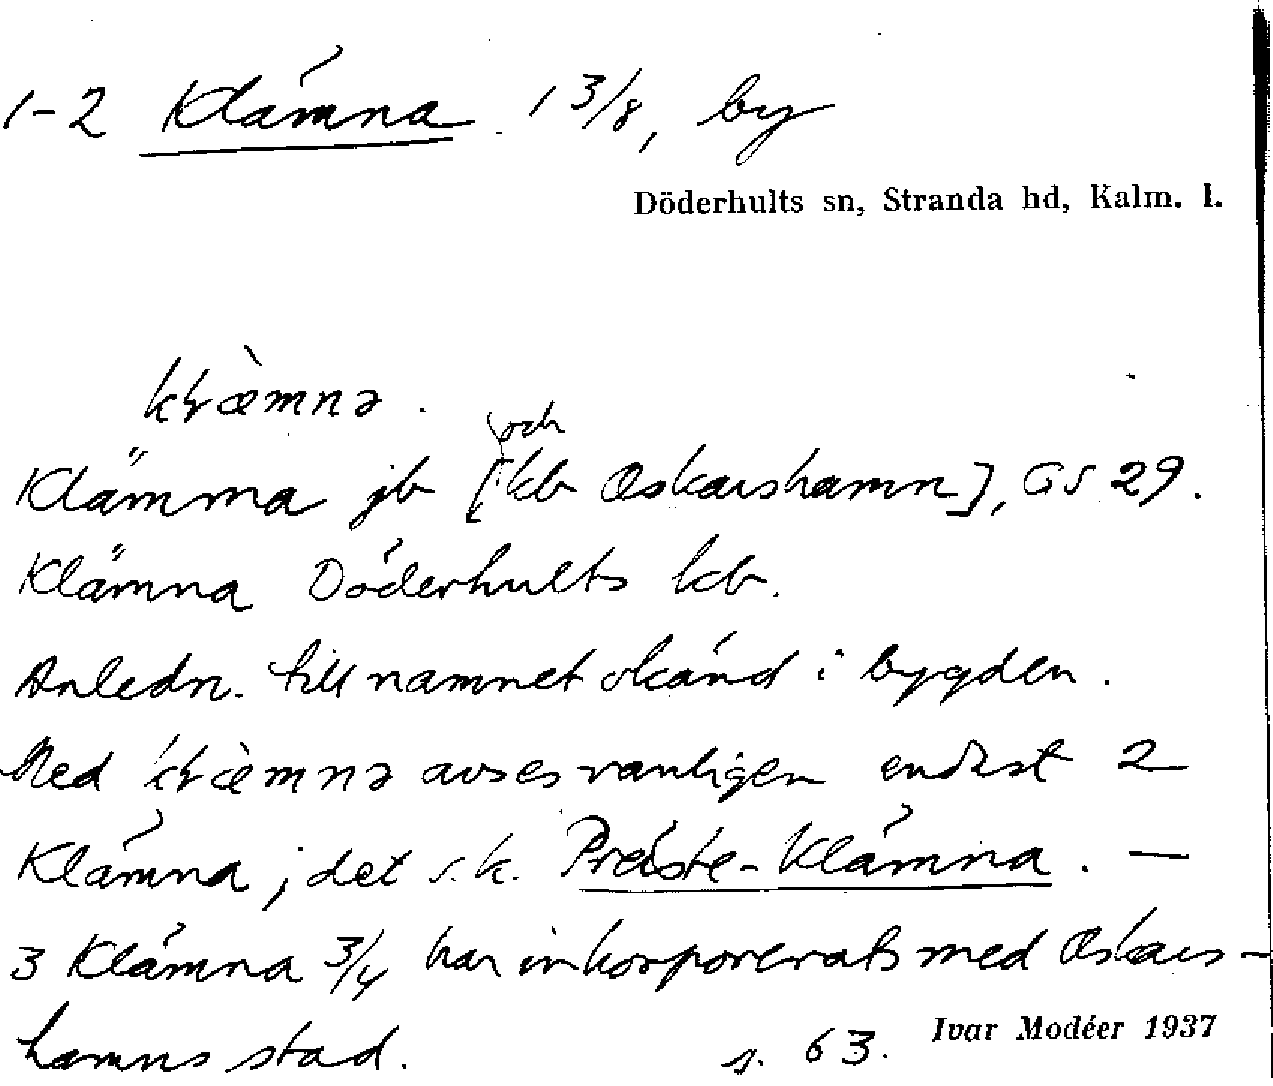 1-2 Klämna 1 3/8, by
Döderhults sn, Stranda hd, Kalm. l.
kɽæ̀mnə.
och
Klämma jb [kb Oskarshamn], GS 29.
Klämna Döderhults kb.
Anledn. till namnet okänd i bygden.
Med kɽæ̀mnə avses vanligen endast 2
Klämna, det s.k. Präste-Klämna. —
3 Klämna 3/4 har inkorporerats med Oskars-
hamns stad. s. 63.
Ivar Modéer 1937